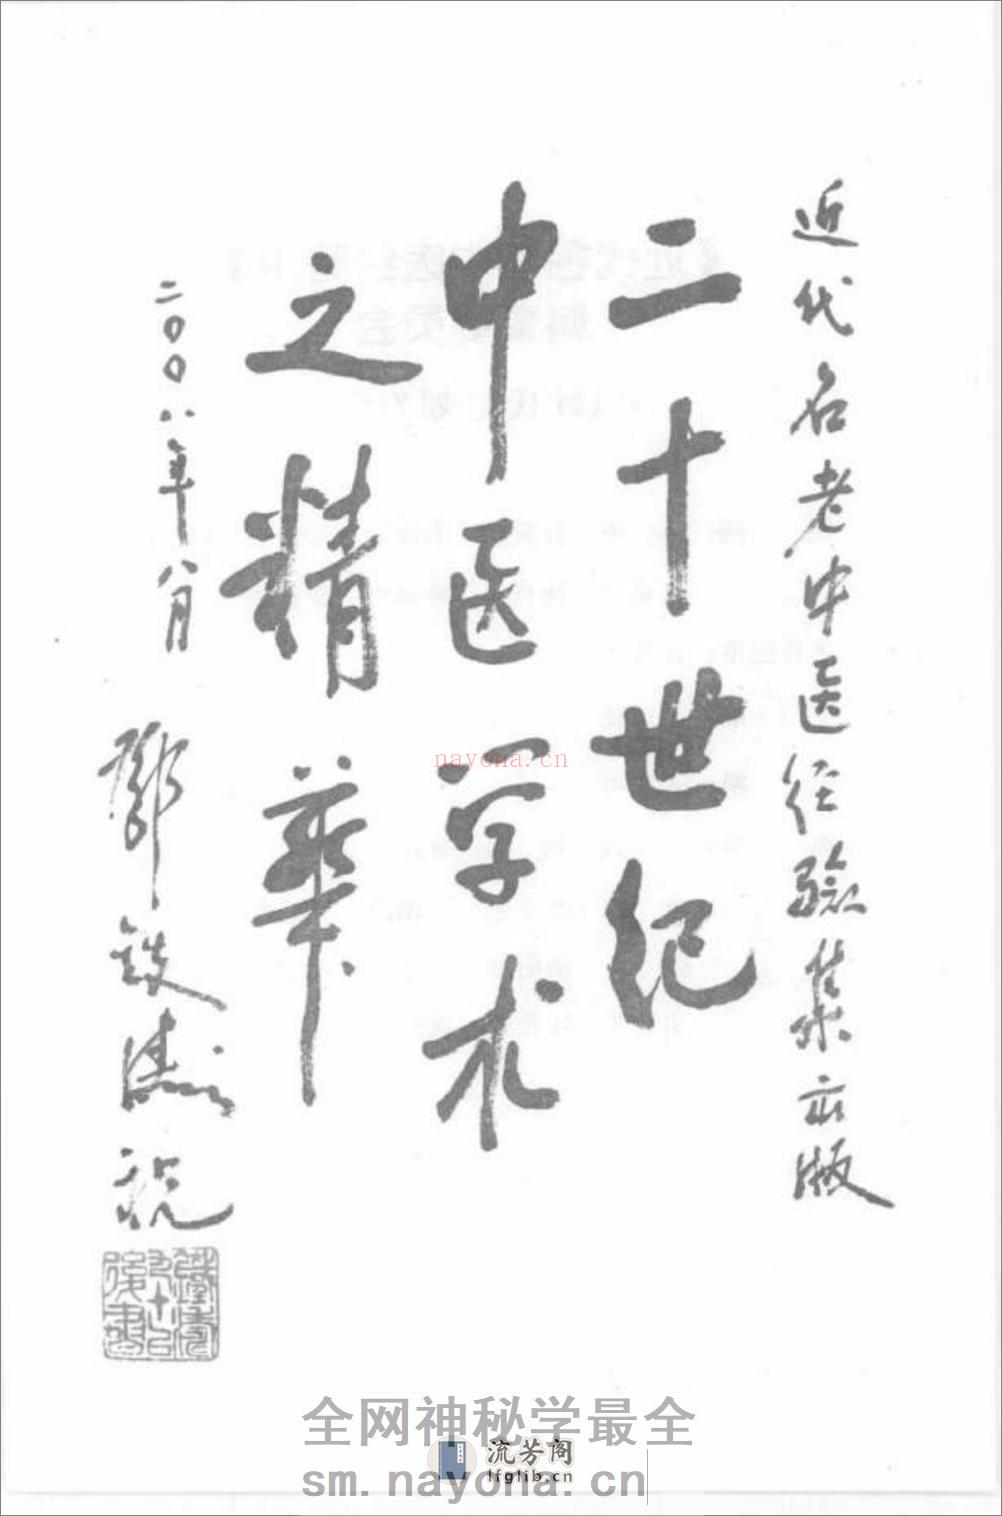 近代名老中医经验集出版
二十世纪
中医学术
之精华
二00八年八月
邓铁涛祝
nayona.cn
全网神秘学最全
流芳阁
lfglib.cn
sm.nayona.cn